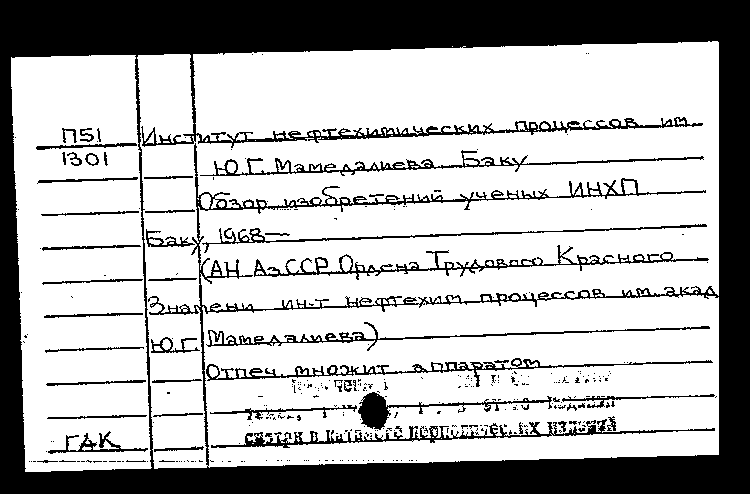 П51 Институт нефтехимических процессов им.
1301 Ю.Г. Мамедалиева. Баку
Обзор изобретений ученых ИНХП
Баку, 1968—
(АН АзССР. Ордена Трудового Красного
Знамени ин-т нефтехим. процессов им. акад
Ю.Г. Мамедалиева)
Отпеч. множит. аппаратом
издания
ГАК смотри в каталоге периодических изданий